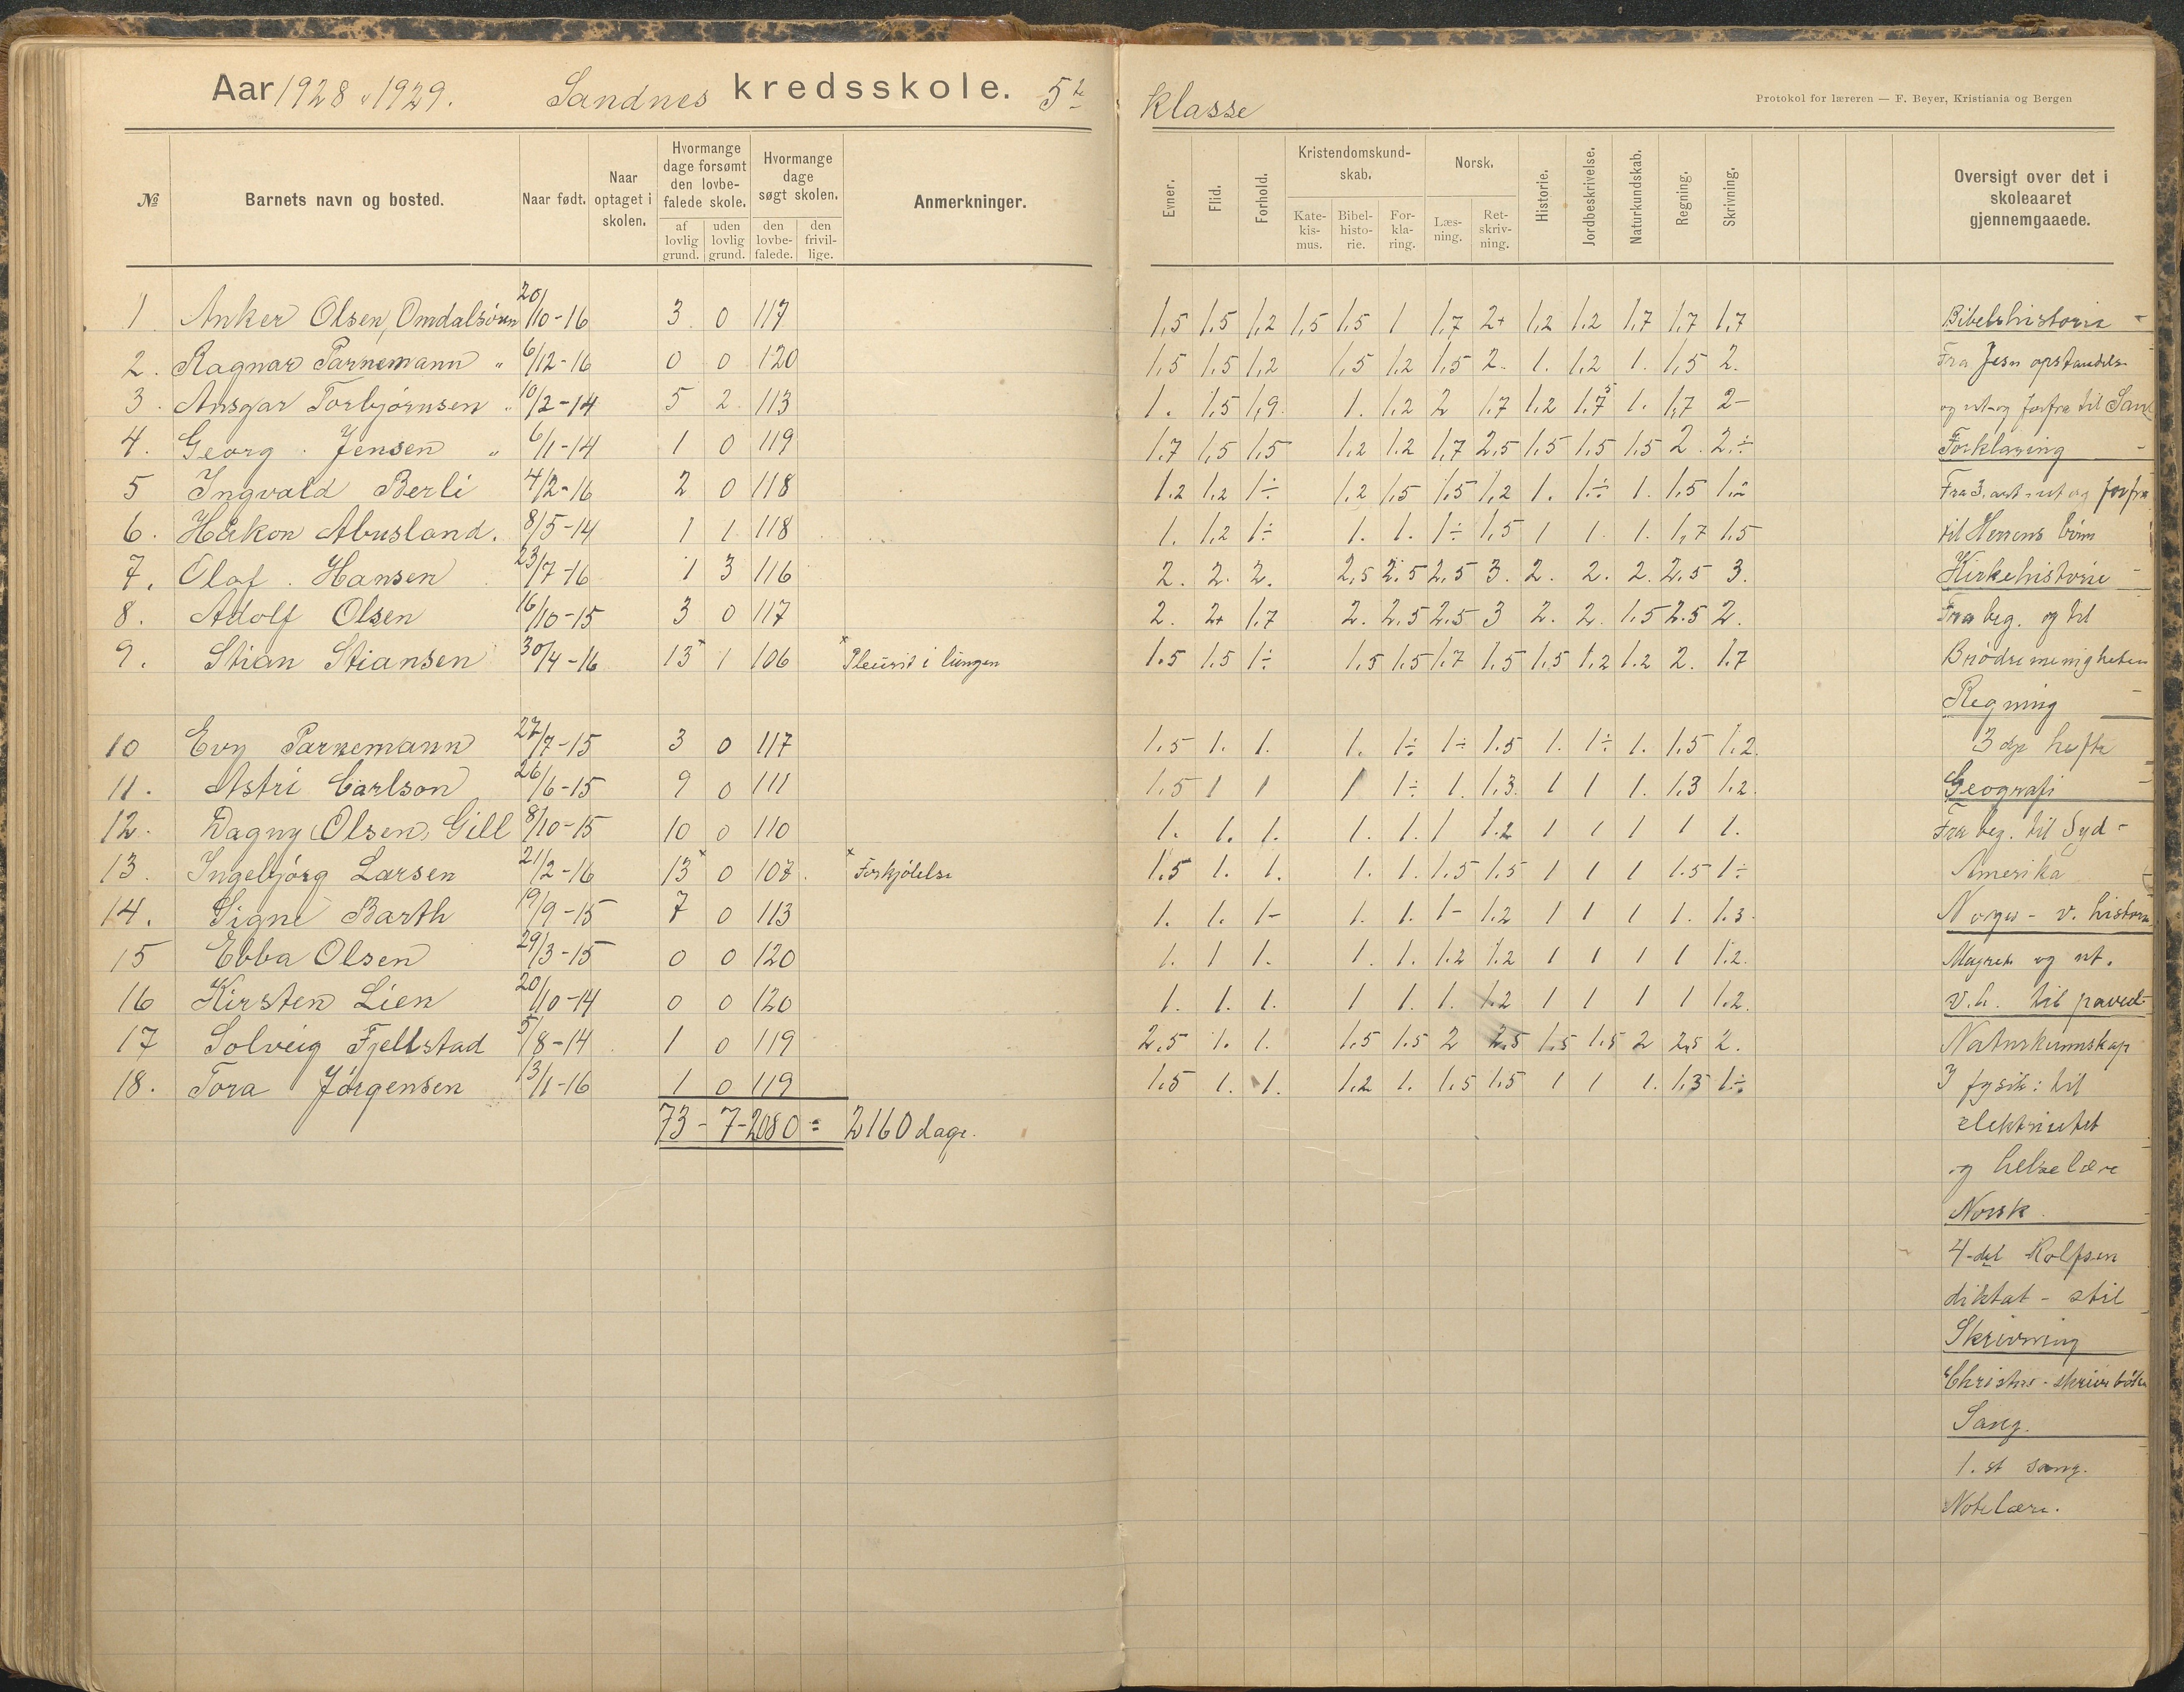 Aar 1928 - 1929. Sandnes kredsskole. 5te klasse
Protokol for læreren — F. Beyer, Kristiania og Bergen
№ Barnets navn og bosted. Naar født. Naar optaget i skolen. Hvormange dage forsømt den lovbefalede skole. af lovlig grund. uden lovlig grund. Hvormange dage søgt skolen. den lovbefalede. den frivillige. Anmerkninger. Evner. Flid. Forhold. Kristendomskundskab. Katekismus. Bibelhistorie. Forklaring. Norsk. Læsning. Retskrivning. Historie. Jordbeskrivelse. Naturkundskab. Regning. Skrivning. Oversigt over det i skoleaaret gjennemgaaede.
1 Anker Olsen, Omdalsøren 20/10-16 3 0 117 1,5 1,5 1,2 1,5 1,5 1 1,7 2+ 1,2 1,2 1,7 1,7 1,7 Bibelhistorie -
2. Ragnar Parnemann " 6/12-16 0 0 120 1,5 1,5 1,2 1,5 1,2 1,5 2. 1. 1,2 1. 1,5 2. Fra Jesu opstandelse
3. Ansgar Torbjørnsen " 10/2-14 5 2 113 1. 1,5 1,9 1. 1,2 2 1,7 1,2 1. 1,7 2- og ut og forfra til
4. Georg Jensen " 6/1-14 1 0 119 1,7 1,5 1,5 1,2 1.2 1,7 2,5 1,5 1,5 1,5 2. 2.÷ Forklaring -
5 Ingvald Berli 4/2-16 2 0 118 1.2 1,2 1÷ 1,2 1,5 1,5 1,2 1. 1.÷ 1. 1,5 1.2 Fra 3. art. ut og forfra
6. Håkon Abusland. 8/5-14 1 1 118 1. 1,2 1÷ 1. 1. 1÷ 1,5 1 1. 1. 1,7 1,5 til Herrens bønn
7. Olaf Hansen 23/7-16 1 3 116 2. 2. 2. 2,5 2,5 2,5 3. 2. 2. 2. 2.5 3. Kirkehistorie -
8. Adolf Olsen 16/10-15 3 0 117 2. 2+ 1,7 2. 2,5 2.5 3 2. 2. 1.5 2.5 2. Fra beg. og til
9. Stian Stiansen 30/4-16 13x 1 106 x Pleurit i lungen 1.5 1.5 1÷ 1,5 1.5 1.7 1.5 1.5 1,2 1.2 2. 1.7 Brödremenigheten
Regning -
10 Evy Parnemann 27/7-15 3 0 117 1.5 1. 1. 1. 1÷ 1÷ 1.5 1. 1÷ 1. 1.5 1.2. 3dje hefte
11. Astri Carlson 26/6-15 9 0 111 1.5 1 1 1 1÷ 1. 1.3. 1 1 1. 1.3 1.2. Geografi -
12. Dagny Olsen, Gill 8/10-15 10 0 110 1. 1. 1. 1. 1. 1 1.2 1 1 1 1 1. Fra beg. til Syd-
13. Ingebjørg Larsen 21/2-16 13x 0 107. x Forkjølelse 1.5 1. 1. 1. 1. 1.5 1.5 1 1 1 1.5 1÷ Amerika
14. Signe Barth 19/9-15 7 0 113 1. 1. 1- 1. 1. 1- 1.2 1 1 1 1. 1.3. Norges - v. historie
15 Ebba Olsen 29/3-15 0 0 120 1. 1 1. 1. 1. 1.2 1.2 1 1 1 1 1.2. og ut.
16 Kirsten Lien 20/10-14 0 0 120 1. 1. 1. 1 1. 1. 1.2 1 1 1 1 1.2. V.h. til
17 Solveig Fjellstad 5/8-14 1 0 119 2.5 1. 1. 1.5 1.5 2 2.5 1.5 1.5 2 2,5 2. Naturkunnskap
18. Tora Jørgensen 13/1-16 1 0 119 1.5 1. 1. 1.2 1. 1.5 1.5 1 1 1. 1.3 1.÷ I fysik: til
73 - 7-2080 = 2160 dage. elektricitet
og helselære
Norsk.
4-del Rolfsen
diktat - stil
Skrivning
skrivebøker
Sang.
1. st sang.
Notelære.